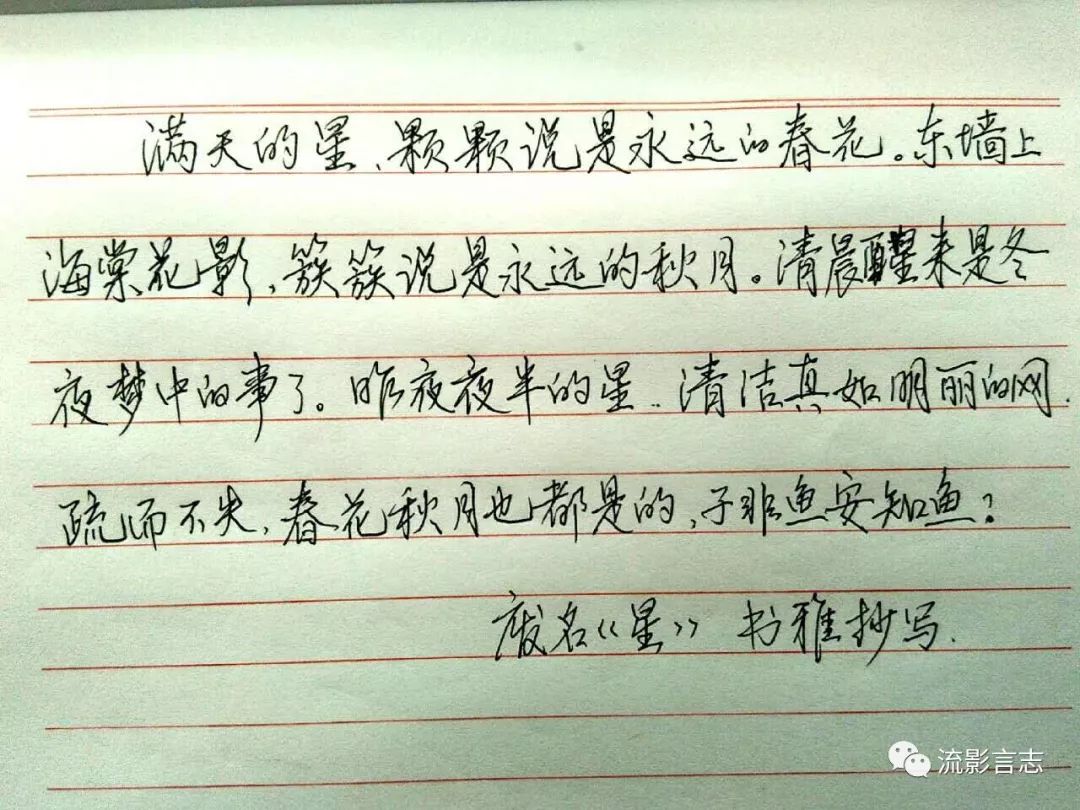 满天的星、颗颗说是永远的春花。东墙上
海棠花影、簇簇说是永远的秋月。清晨醒来是冬
夜梦中的事了。昨夜夜半的星、清洁真如明丽的网、
疏而不失、春花秋月也都是的、子非鱼安知鱼？
废名《星》 书雅抄写.
流影言志